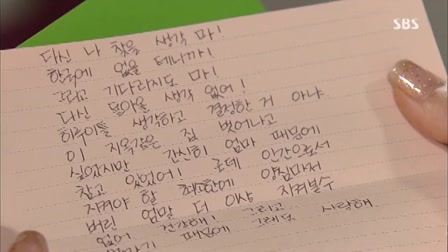 SBS
다신 나 찾을 생각 마!
한국에 없을 테니까!
그리고 기다리지도 마!
다신 돌아올 생각 없어!
하루이틀 생각하고 결정한 거 아냐
이 지옥같은 집 벗어나고
싶었지만 간신히 엄마 때문에
참고 있었어! 근데 인간으로서
지켜야 할 최소한의 양심마저
버린 엄말 더 이상 지켜볼수
없어 건강해! 그리고
때문에 그래도 사랑해